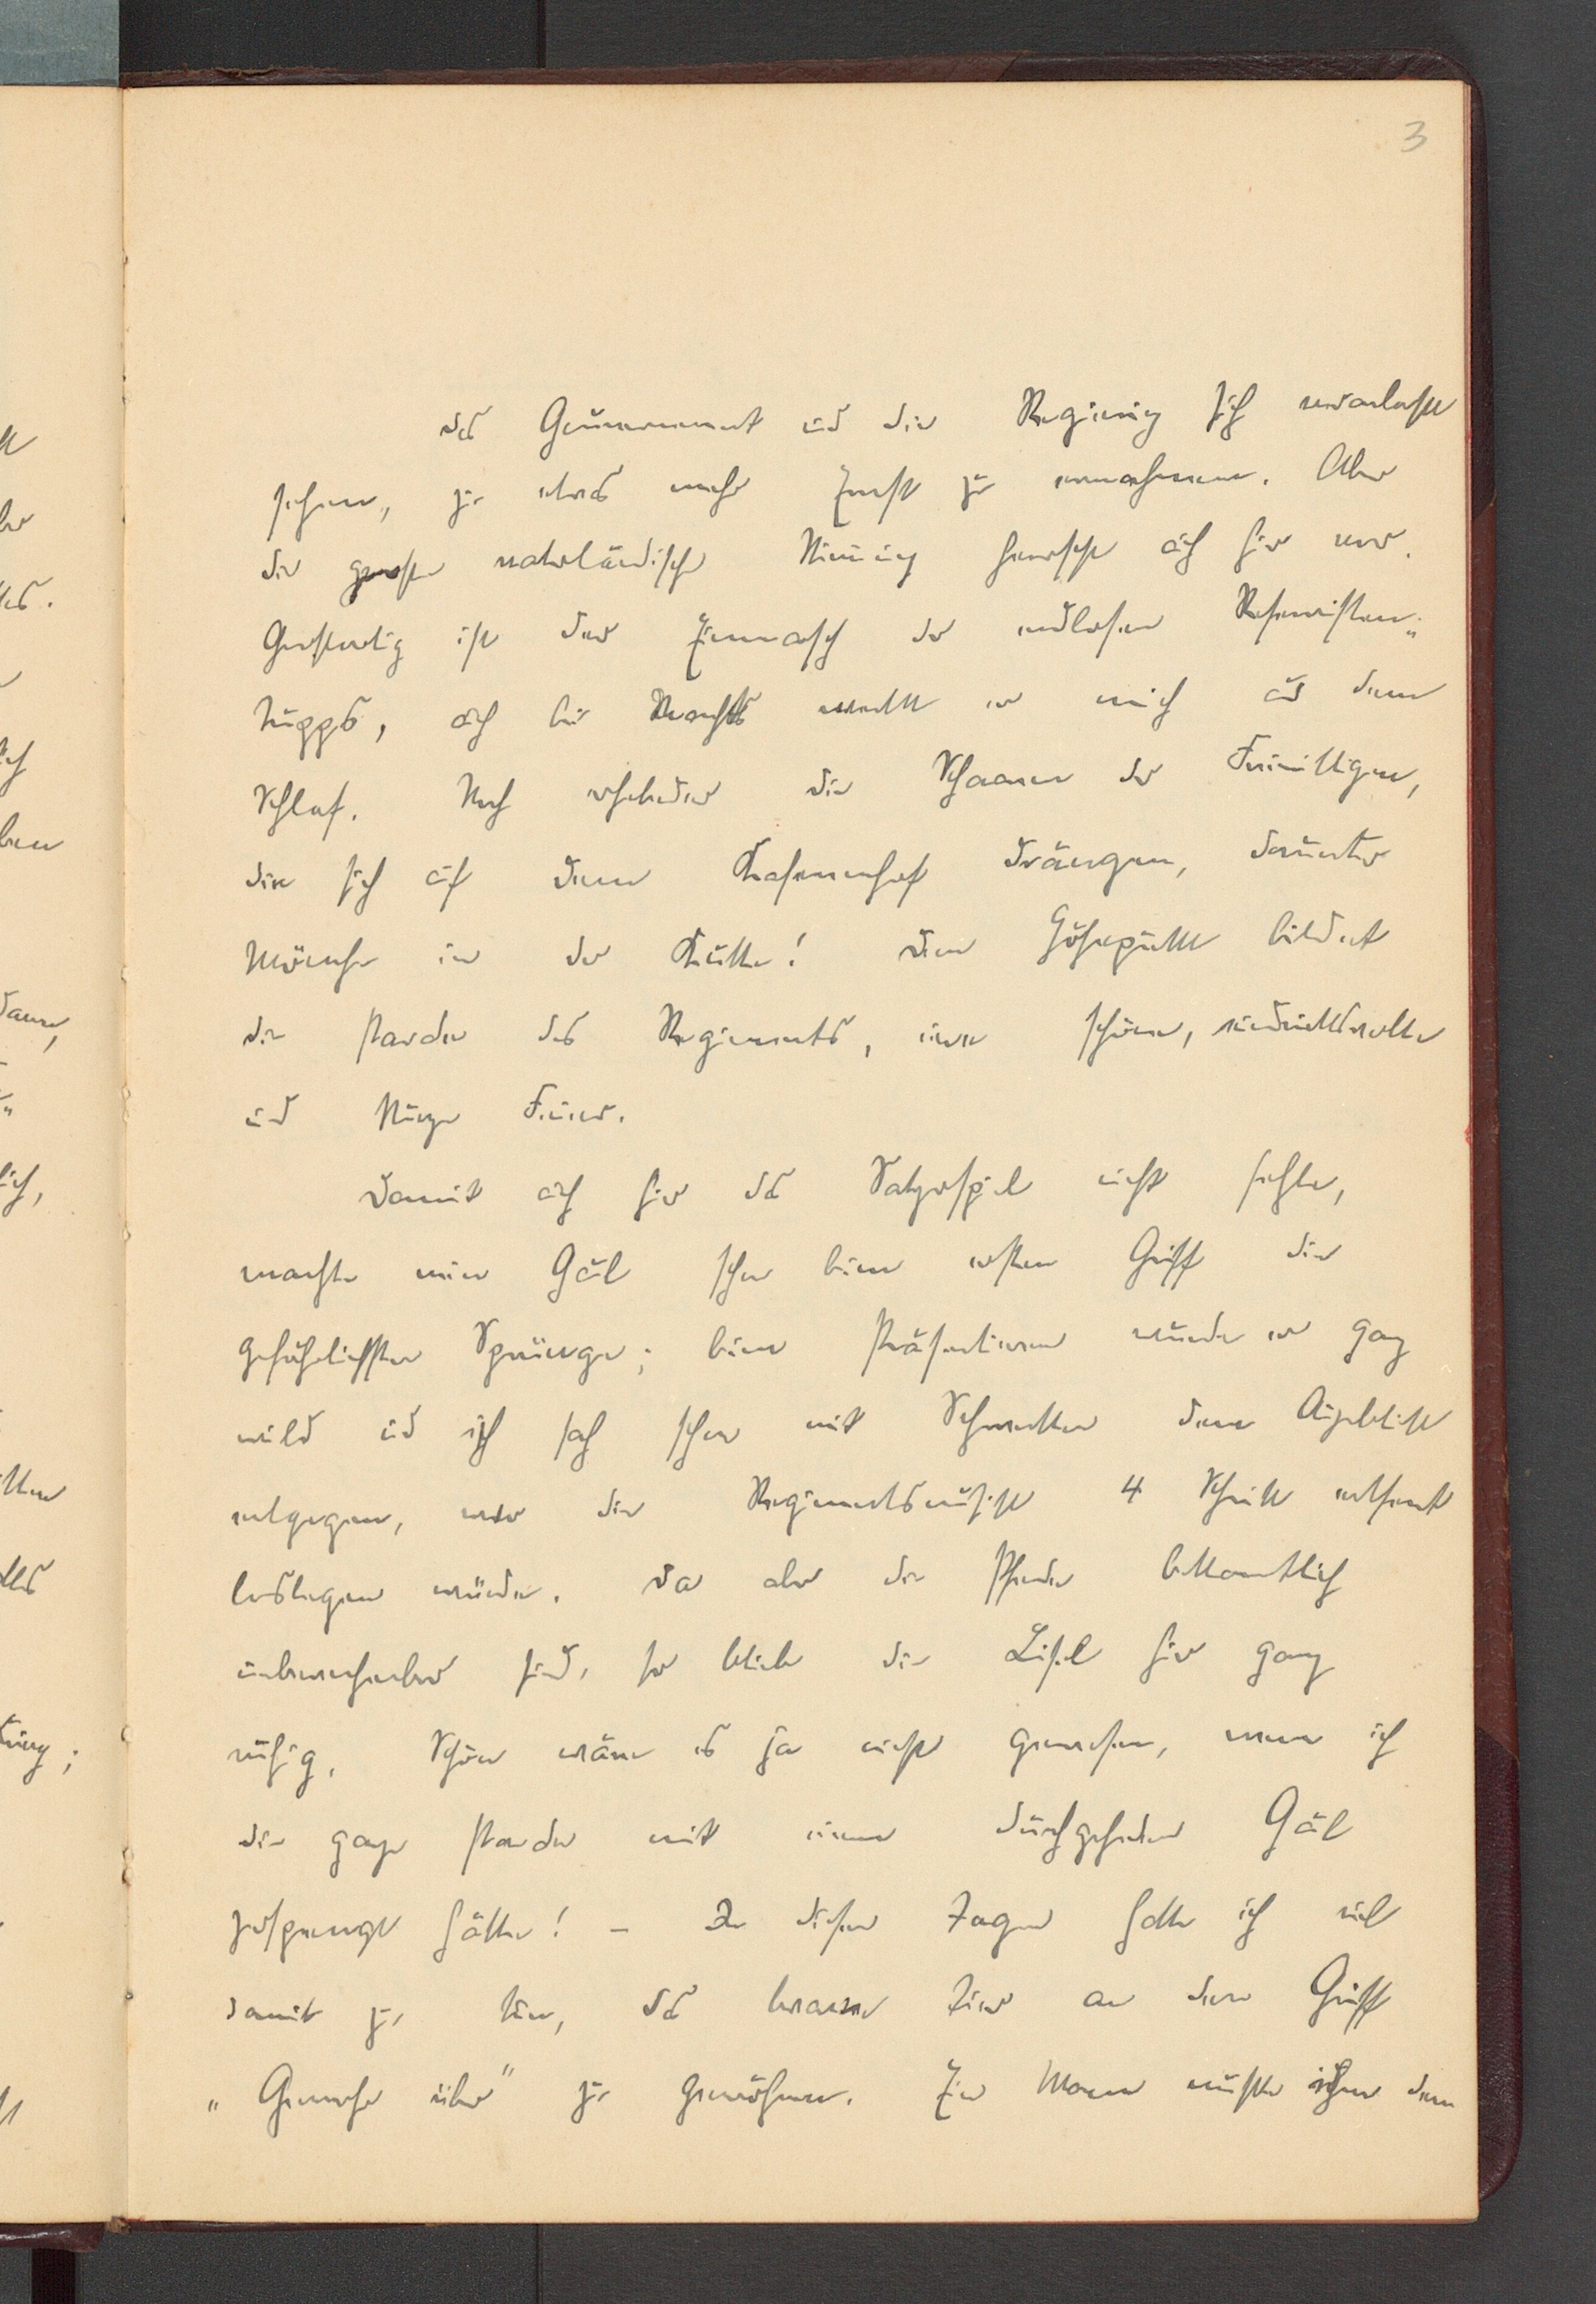 3
das Gouvernement und die Regierung sich veranlasst
sehen, zu etwas mehr Ernst zu ermahnen. Aber
die grosse vaterländische Stimmung herrscht auch hier vor.
Grossartig ist der Einmarsch der endlosen Reservisten-
trupps, auch bei Nacht weckt er mich aus dem
Schlaf. Noch erhebender die Schaaren der Freiwilligen,
die sich auf dem Kasernenhof drängen, darunter
Mönche in der Kutte! Den Höhepunkt bildet
die Parade des Regiments, eine schöne, eindrucksvolle
und kurze Feier.
Damit auch hier das Satyrspiel nicht fehle,
machte mein Gaul schon beim ersten Griff die
gefährlichsten Sprünge; beim Präsentieren wurde er ganz
wild und ich sah schon mit Schrecken dem Augenblick
entgegen, wo die Regimentsmusik 4 Schritt entfernt
loslegen würde. Da aber die Pferde bekanntlich
unberechenbar sind, so blieb die Lisel hier ganz
ruhig. Schön wäre es ja nicht gewesen, wenn ich
die ganze Parade mit einem durchgehenden Gaul
zersprengt hätte! – In diesen Tagen hatte ich viel
damit zu tun, das brave Tier an den Griff
„Gewehr über" zu gewöhnen. Ein Mann musste ihm den